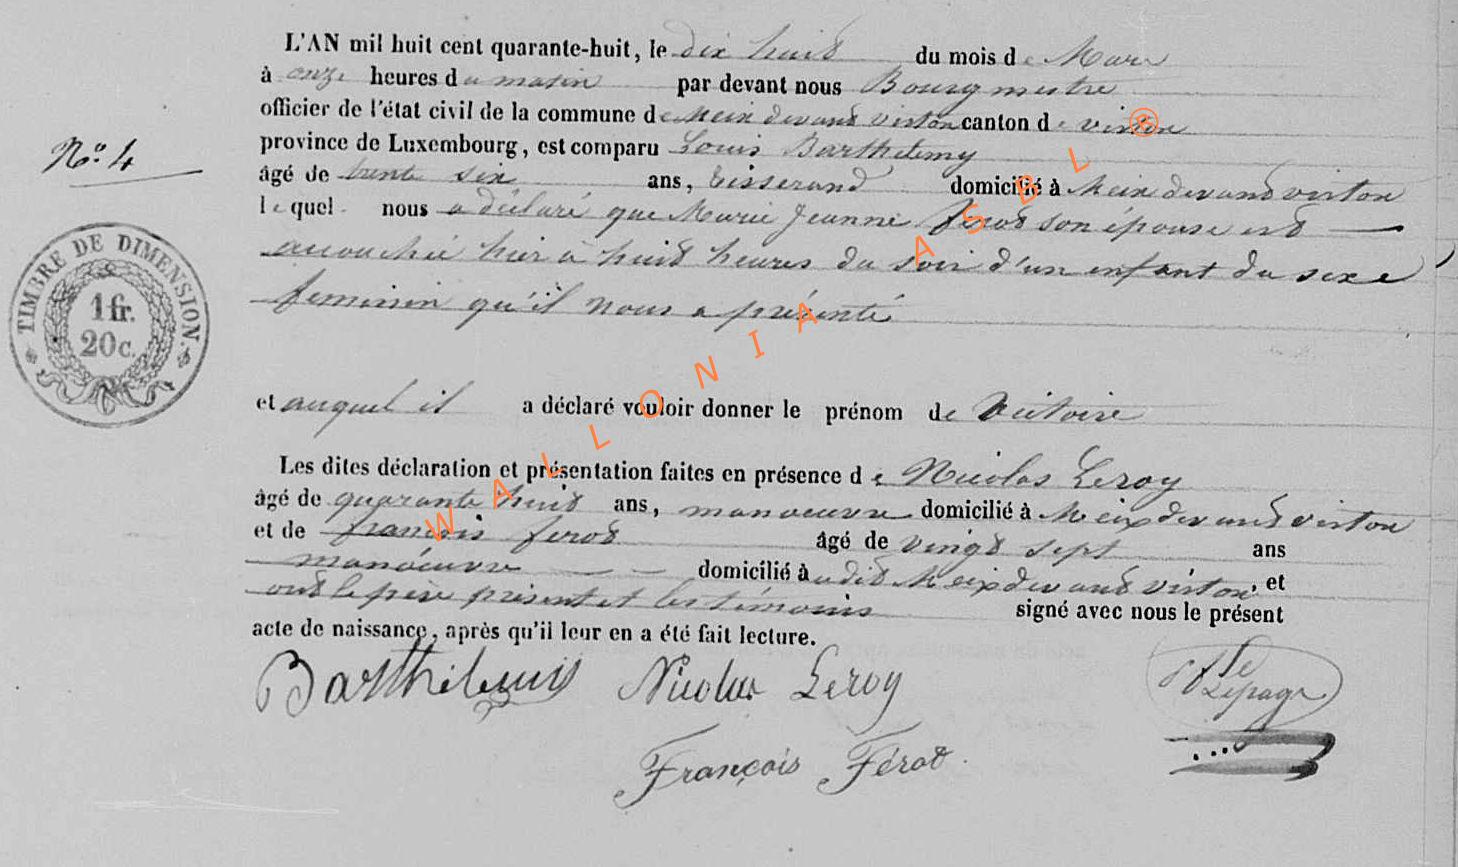 L'AN mil huit cent quarante-huit, le dix huit du mois de Mars
à onze heures du matin par devant nous Bourgmestre
officier de l'état civil de la commune de Meix devant virton canton de virton
province de Luxembourg, est comparu Louis Barthelemy
N° 4
âgé de trente six ans, tisserand domicilié à Meix devant virton
lequel nous a déclaré que Marie Jeanne ferot son épouse est
accouchée hier à huit heures du soir d'un enfant du sexe
feminin qu'il nous a présenté
TIMBRE DE DIMENSION
1 fr.
20 c.
et auquel il a déclaré vouloir donner le prénom de Victoire
Les dites déclaration et présentation faites en présence de Nicolas Leroy
âgé de quarante huit ans, manoeuvre domicilié à Meix devant virton
et de francois ferot âgé de vingt sept ans
manoeuvre domicilié audit Meix devant virton, et
ont le père présent et les témoins signé avec nous le présent
acte de naissance, après qu'il leur en a été fait lecture.
Barthélemy Nicolas Leroy Lepage
François Férot
WALLONIA ASBL ®